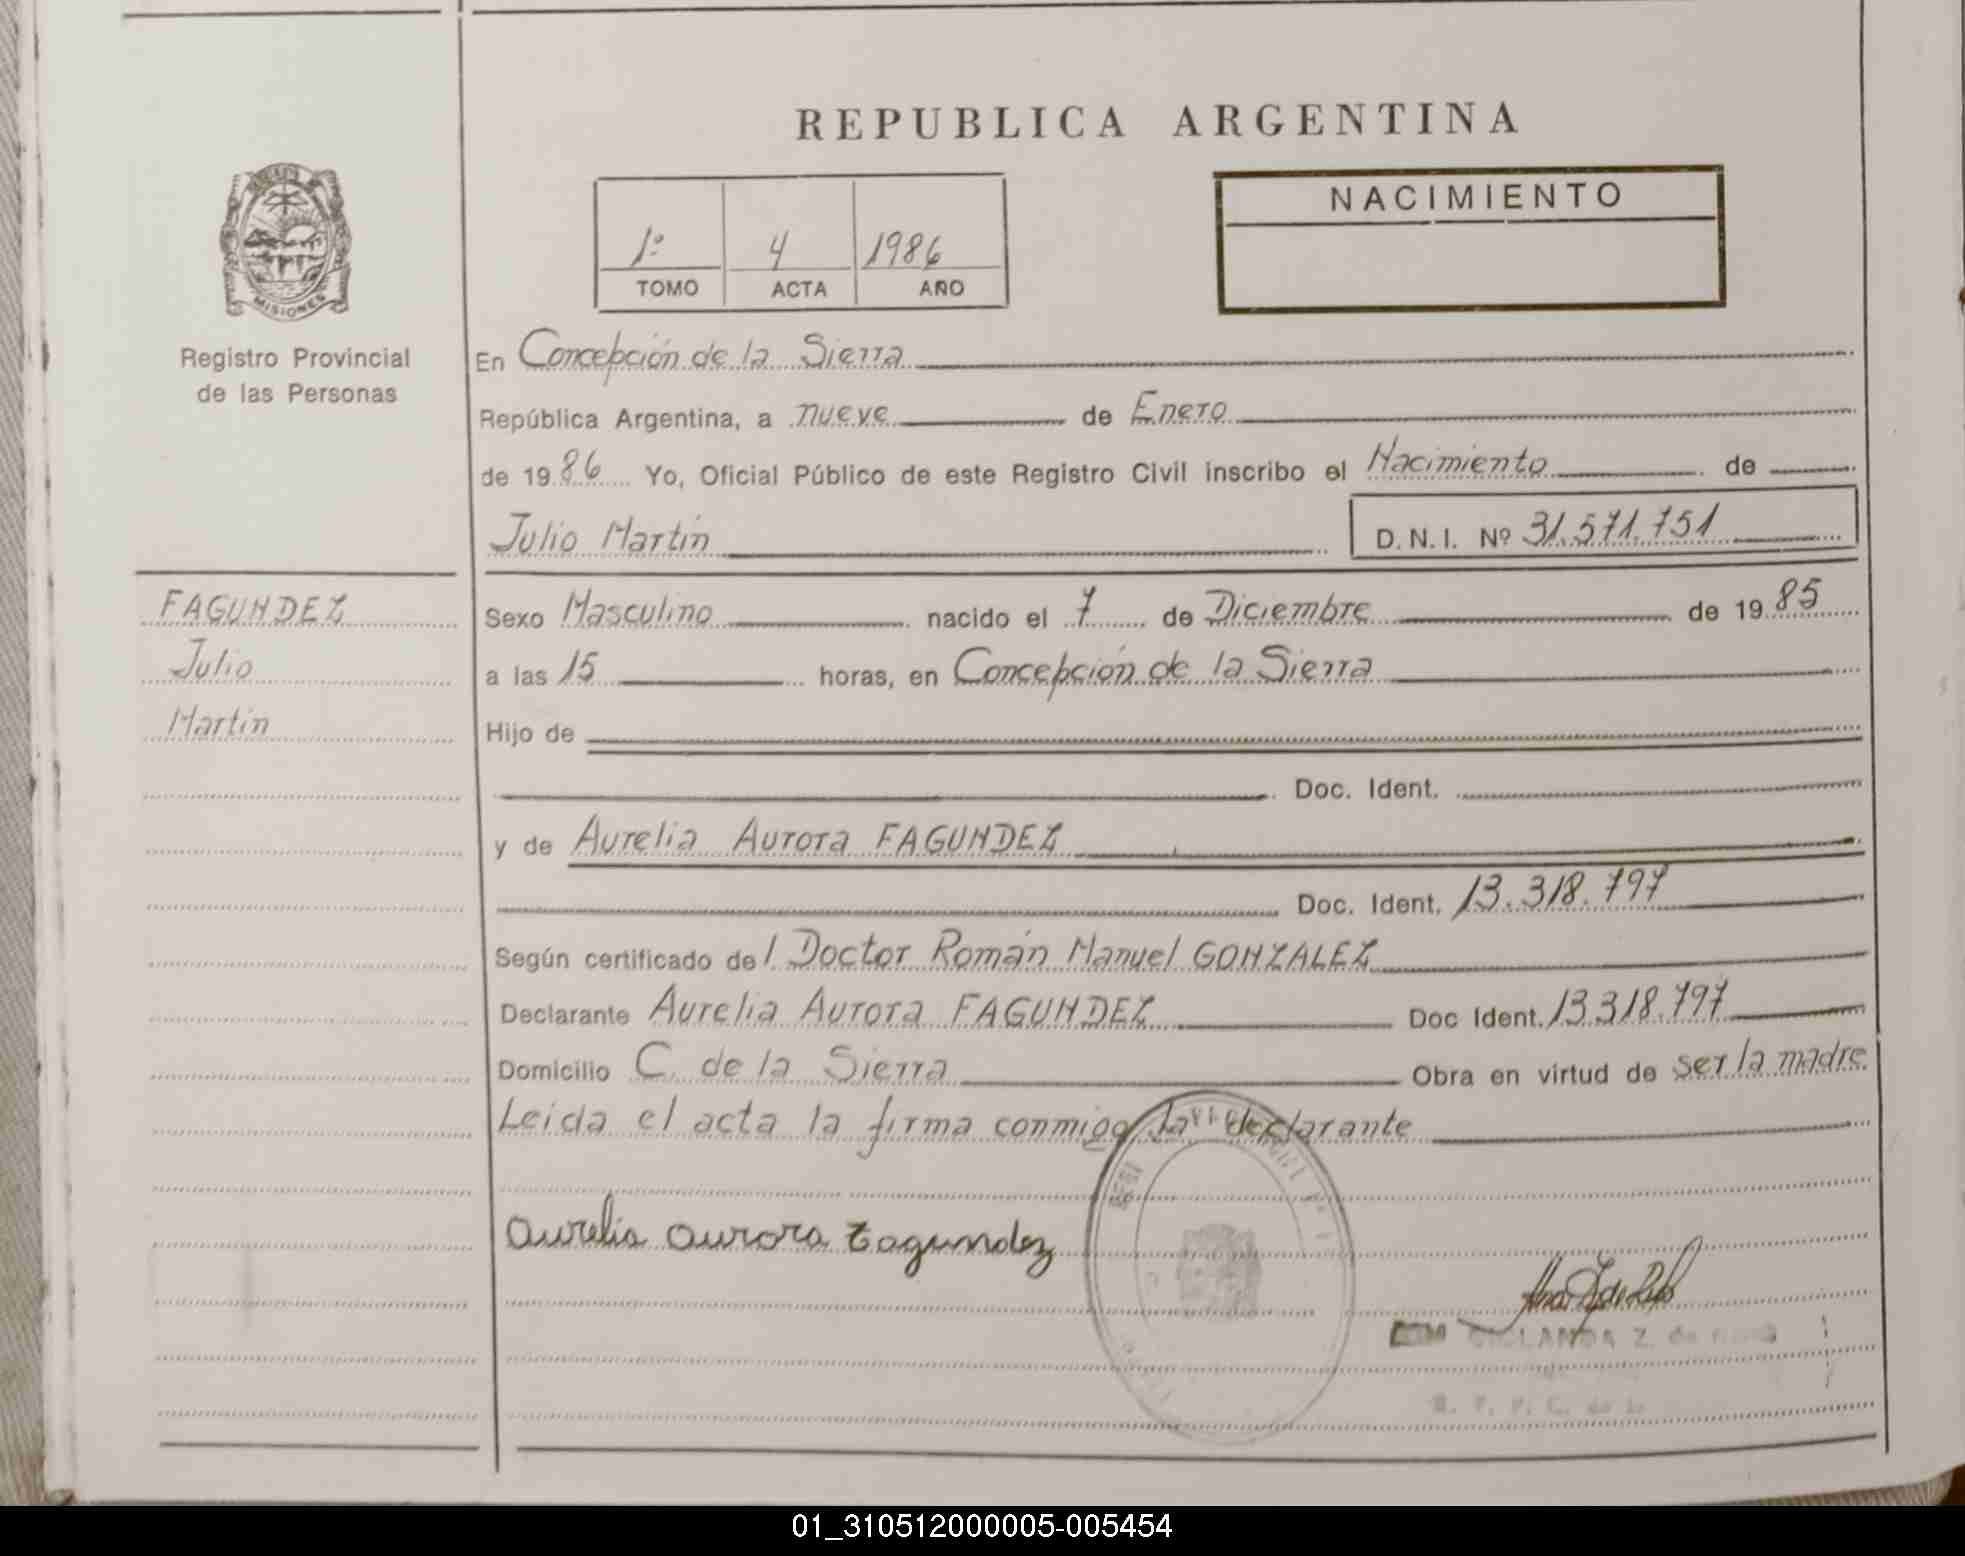 REPUBLICA ARGENTINA
MISIONES
Registro Provincial
de las Personas
1º 4 1986
TOMO ACTA AÑO
NACIMIENTO
En Concepción de la Sierra
República Argentina, a nueve de Enero
de 1986 Yo, Oficial Público de este Registro Civil inscribo el Nacimiento de
Julio Martín D.N.I. Nº 31.571.751
FAGUNDEZ
Julio
Martín
Sexo Masculino nacido el 7 de Diciembre de 1985
a las 15 horas, en Concepción de la Sierra
Hijo de
Doc. Ident.
y de Aurelia Aurora FAGUNDEZ
Doc. Ident. 13.318.797
Según certificado del Doctor Román Manuel GONZALEZ
Declarante Aurelia Aurora FAGUNDEZ Doc Ident. 13.318.797
Domicilio C. de la Sierra Obra en virtud de ser la madre
Leida el acta la firma conmigo la declarante
Aurelia Aurora Fagundez
Z. de
01_310512000005-005454